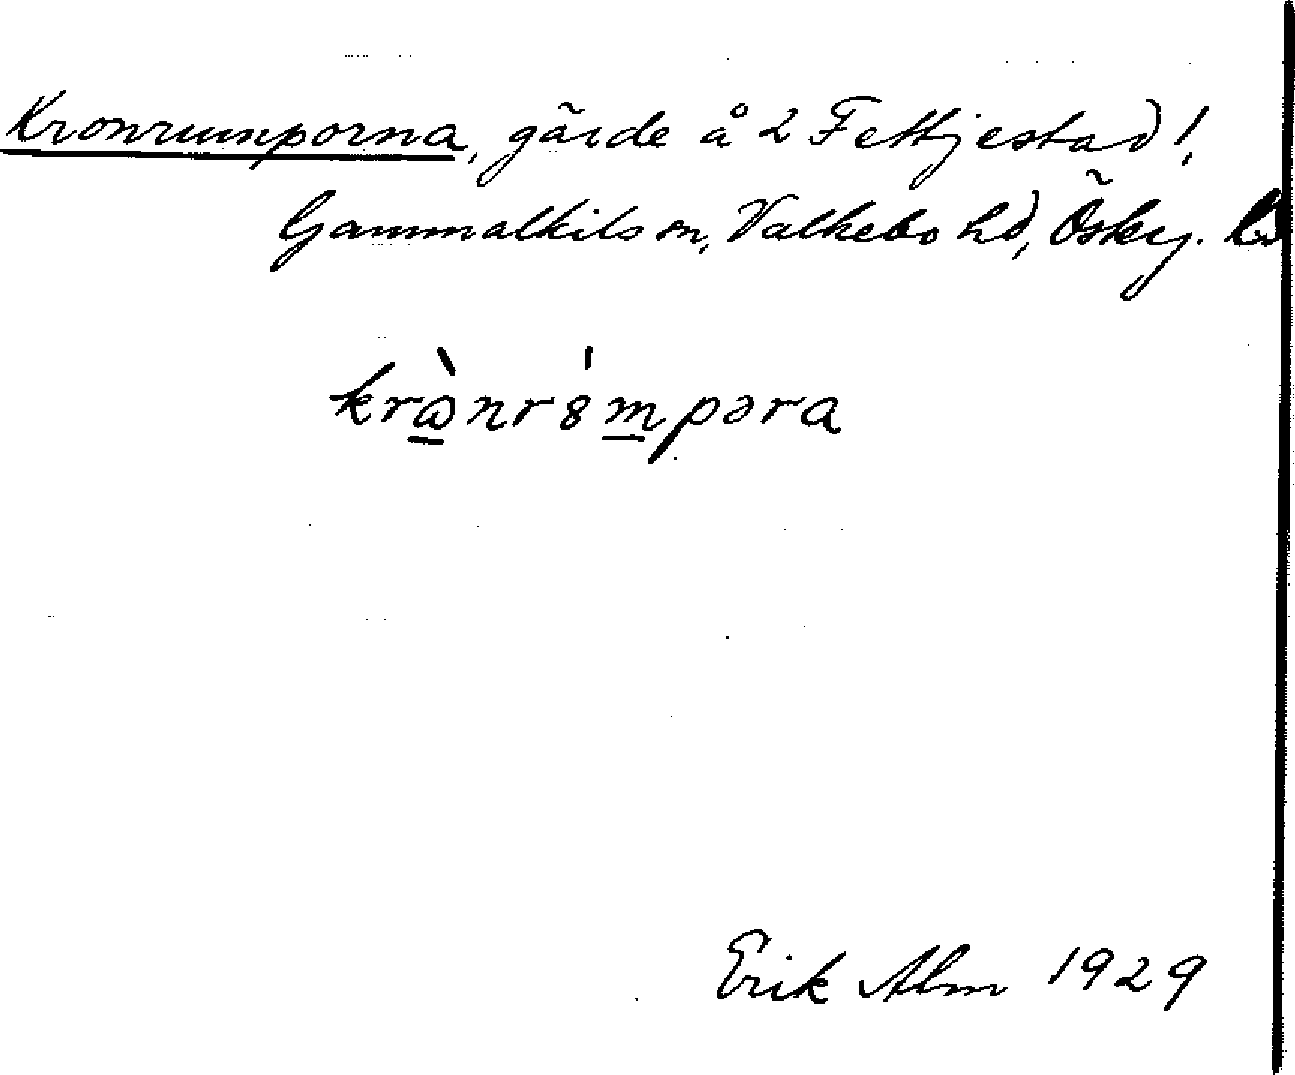 Kronrumporna, gärde å 2 Fettjestad!,
Gammalkils sn, Valkebo hd, Öskg. l
krɷ̀nr8́mpəra
Erik Alm 1929